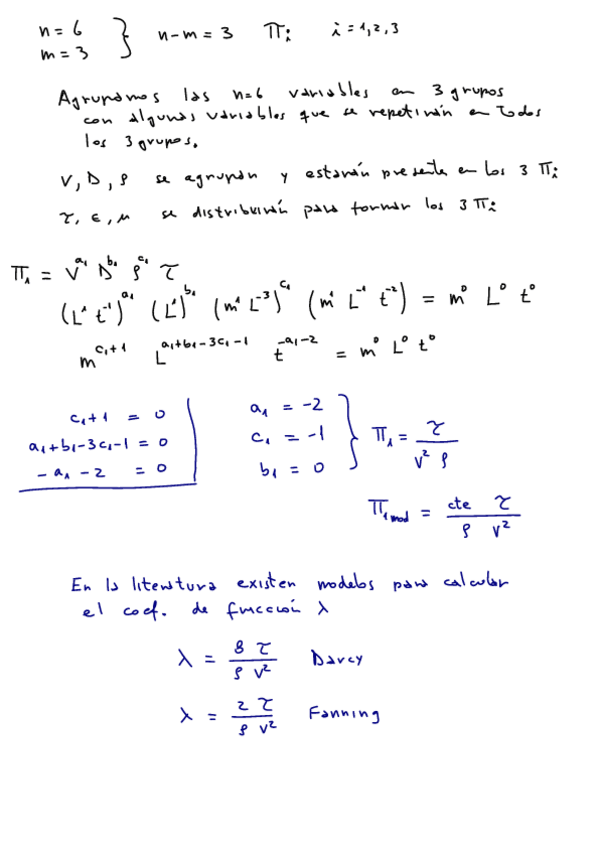 n = 6
m = 3 } n-m = 3 Πᵢ i = 1,2,3
Agrupamos las n=6 variables en 3 grupos
con algunas variables que se repetirán en todos
los 3 grupos.
V, D, ρ se agrupan y estarán presente en los 3 Πᵢ
τ, ε, μ se distribuirán para formar los 3 Πᵢ
Π₁ = V^a₁ D^b₁ ρ^c₁ τ
(L¹ t⁻¹)^a₁ (L¹)^b₁ (m¹ L⁻³)^c₁ (m¹ L⁻¹ t⁻²) = m⁰ L⁰ t⁰
m^(c₁+1) L^(a₁+b₁-3c₁-1) t^(-a₁-2) = m⁰ L⁰ t⁰
c₁+1 = 0
a₁+b₁-3c₁-1 = 0
-a₁-2 = 0
a₁ = -2
c₁ = -1
b₁ = 0
} Π₁ = τ / (V² ρ)
Π₁mod = cte τ / (ρ V²)
En la literatura existen modelos para calcular
el coef. de fricción λ
λ = 8 τ / (ρ V²) Darcy
λ = 2 τ / (ρ V²) Fanning